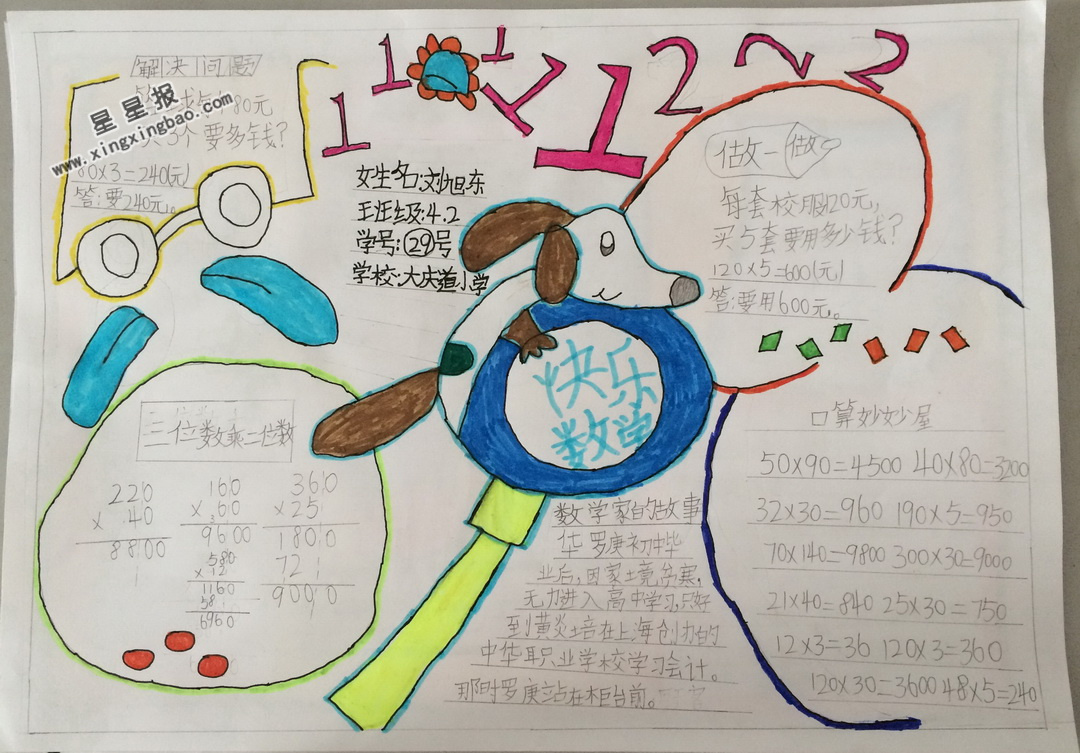 解决问题
80元
个要多钱?
80×3=240(元)
答:要240元。
星星报
www.xingxingbao.com
1 1 1 1 1 2 2 2
女生名:刘旭东
班级:4.2
学号:29号
学校:大庆道小学
做一做
每套校服120元,
买5套要用多少钱?
120×5=600(元)
答:要用600元。
快乐
数学
三位数乘二位数
220
× 40
8800
160
× 60
9600
360
× 25
1800
72
9000
580
× 12
1160
58
6960
口算妙妙屋
50×90=4500 40×80=3200
32×30=960 190×5=950
70×140=9800 300×30=9000
21×40=840 25×30=750
12×3=36 120×3=360
120×30=3600 48×5=240
数学家的故事
华罗庚初中毕
业后,因家境贫寒,
无力进入高中学习,只好
到黄炎培在上海创办的
中华职业学校学习会计。
那时罗庚站在柜台前。